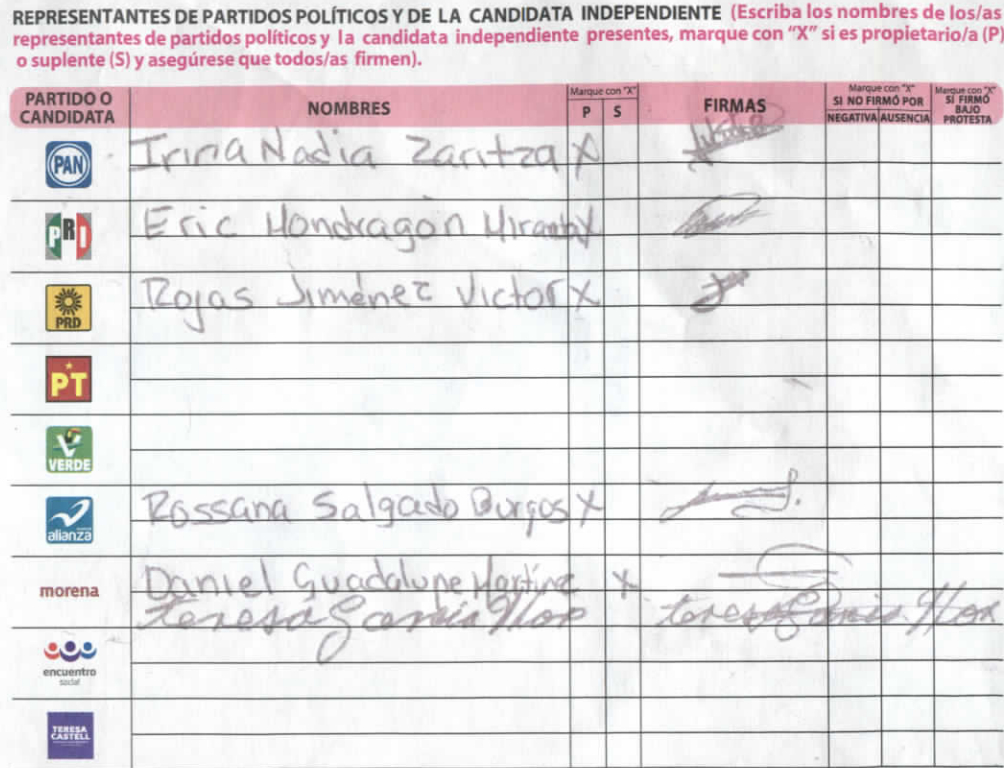 REPRESENTANTES DE PARTIDOS POLÍTICOS Y DE LA CANDIDATA INDEPENDIENTE (Escriba los nombres de los/as
representantes de partidos políticos y la candidata independiente presentes, marque con "X" si es propietario/a (P)
o suplente (S) y asegúrese que todos/as firmen).
PARTIDO O CANDIDATA NOMBRES Marque con "X" P S FIRMAS Marque con "X" SI NO FIRMÓ POR NEGATIVA AUSENCIA Marque con "X" SI FIRMÓ BAJO PROTESTA
PAN Irina Nadia Zaritza X
PRI Eric Mondragón Miranda X
PRD Rojas Jiménez Victor X
PT
VERDE
alianza Rossana Salgado Burgos X
morena Daniel Guadalupe Martínez X
teresa García Flor teresa García Flor
encuentro
social
TERESA
CASTELL